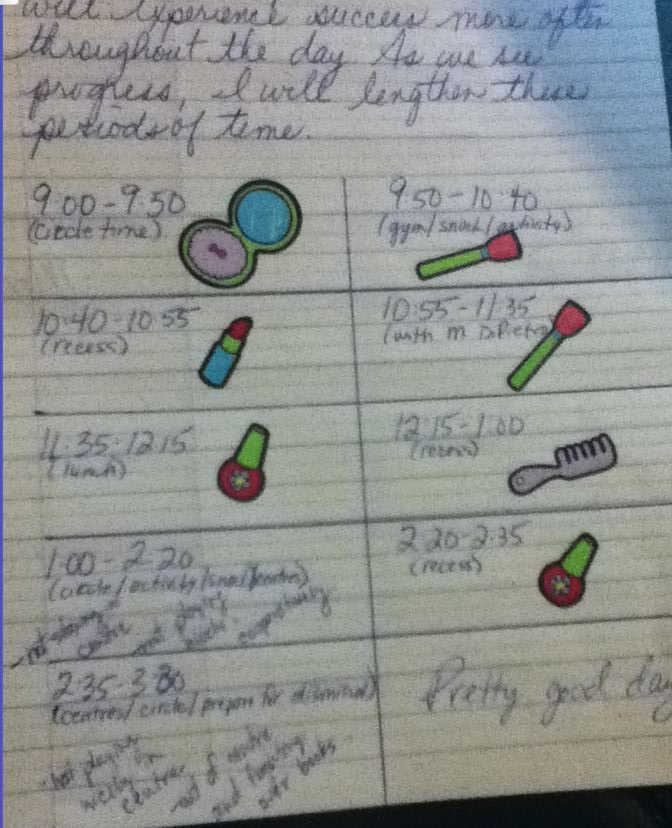 will experience success more often
throughout the day. As we see
progress, I will lengthen these
periods of time.
9:00-9:50
(circle time)
9:50-10:40
(gym/snack/activity)
10:40-10:55
(recess)
10:55-11:35
(with m
11:35-12:15
(lunch)
12:15-1:00
(recess)
1:00-2:20
(circle/activity/
2:20-2:35
(recess)
2:35-3:30
(centres/circle/prepare for dismissal)
Pretty good day
not playing
nicely in
centres
out of centre
and
books